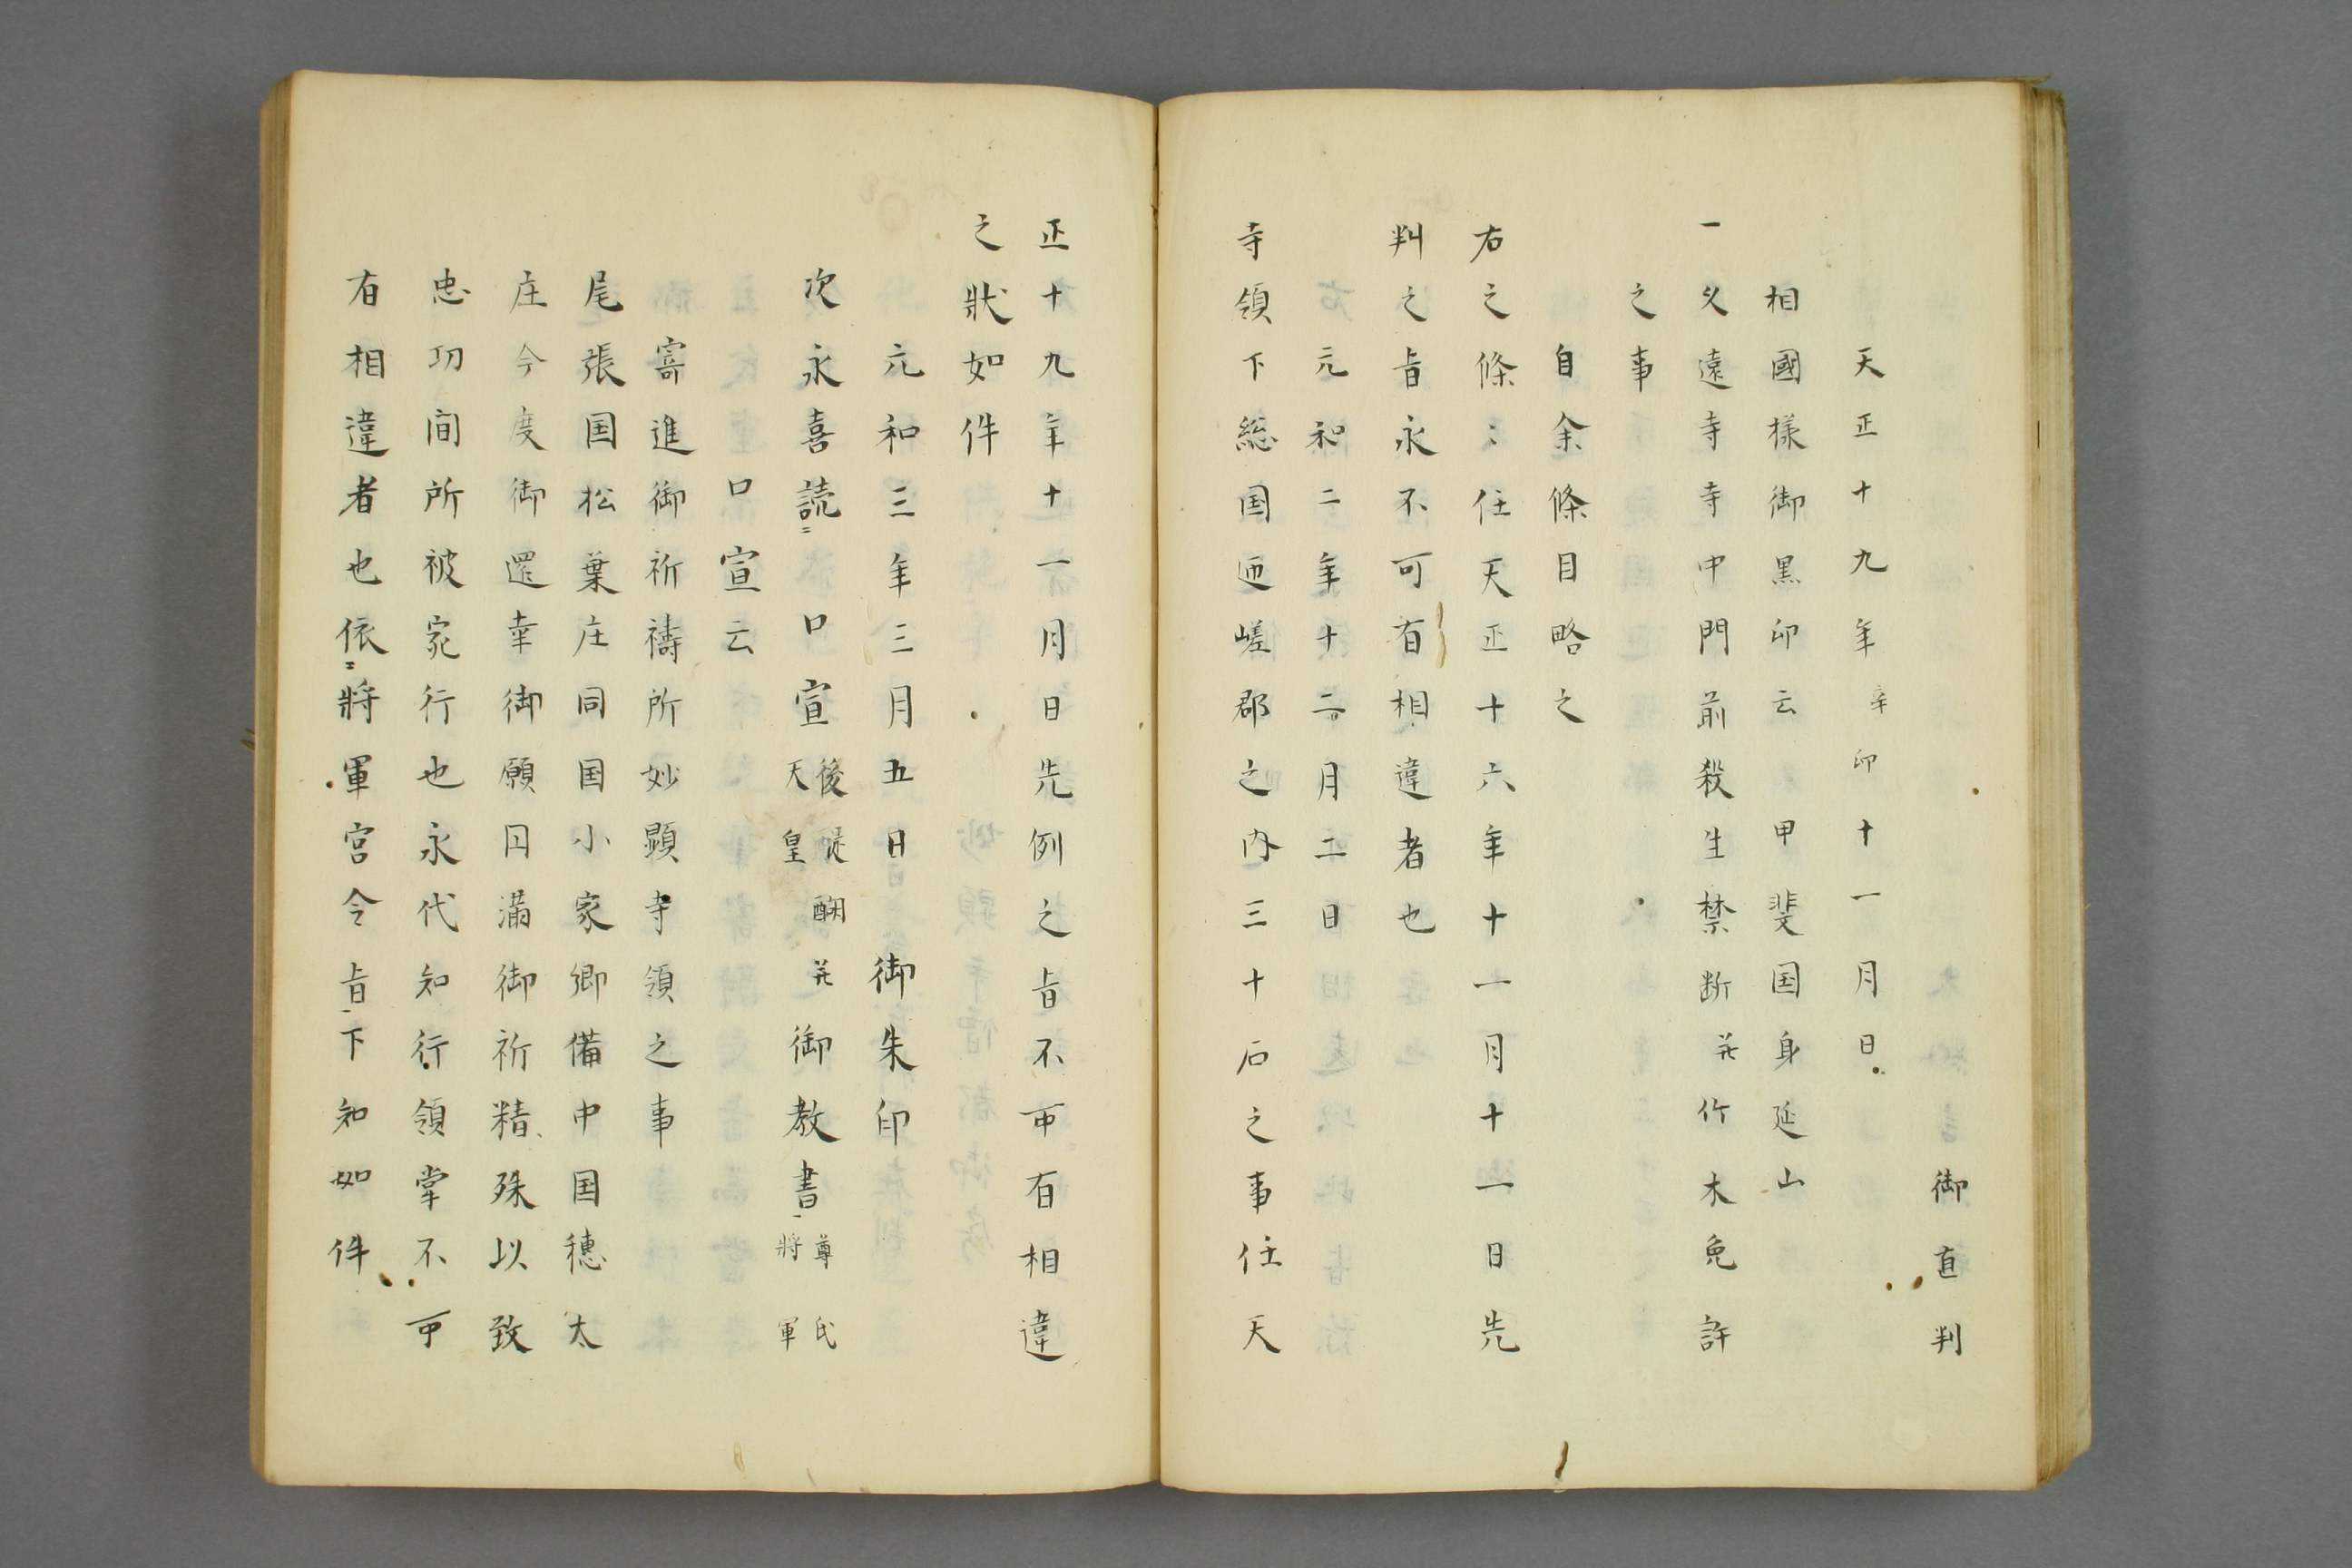 御直判
天正十九年辛卯十一月日
相國様御黒印云　甲斐国身延山
一久遠寺寺中門前殺生禁断并竹木免許
之事
自余條目略之
右之條々任天正十六年十一月十一日先
判之旨永不可有相違者也
元和二年十二月二日
寺領下総国迊嵯郡之内三十石之事任天
正十九年十一月日先例之旨不可有相違
之状如件
元和三年三月五日　御朱印
次永喜読口宣後醍醐天皇并御教書尊氏将軍
口宣云
寄進御祈禱所妙顕寺領之事
尾張国松葉庄同国小家郷備中国穂太
庄今度御還幸御願円満御祈精殊以致
忠功间所被宛行也永代知行領掌不可
有相違者也依将軍宮令旨下知如件